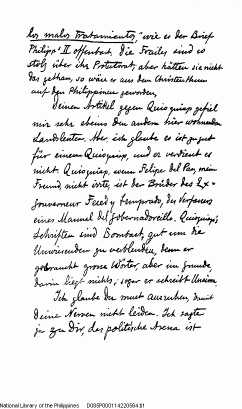 los malos tratamientos," wie es der Brief
Philipp's II offenbart. Die Frailes sind so
stolz über ihr Protectorat, aber hätten sie nicht
das gethan, so wäre es aus dem Christenthum
auf den Philippinen geworden.
Deinen Artikel gegen Quioquiap gefiel
mir sehr ebenso den andern hier wohnenden
Landsleuten. Aber ich glaube es ist zu gut
für einem Quioquiap, und er verdient es
nicht. Quioquiap, wenn Felipe del Pan, mein
Freund, nicht irrte, ist der Brüder des Ex-
Gouverneur Feced y Temprado, des Verfassers
eines Manual del Gobernadorcillo. Quioquiap's
Schriften sind Bombast, gut um die
Unwissenden zu verblenden, denn er
gebraucht grosse Wörter, aber im Grunde
darin liegt nichts; sogar er schreibt Unsinn
Ich glaube du must ausruhen, damit
deine Nerven nicht leiden. Ich sagte
ja zu Dir, das politische Arena ist
National Library of the Philippines D00SP00011422055431